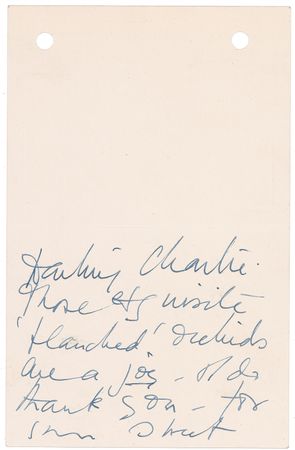 Darling Charlie.
Those exquisite
'blanched' orchids
are a joy - I do
thank you - for